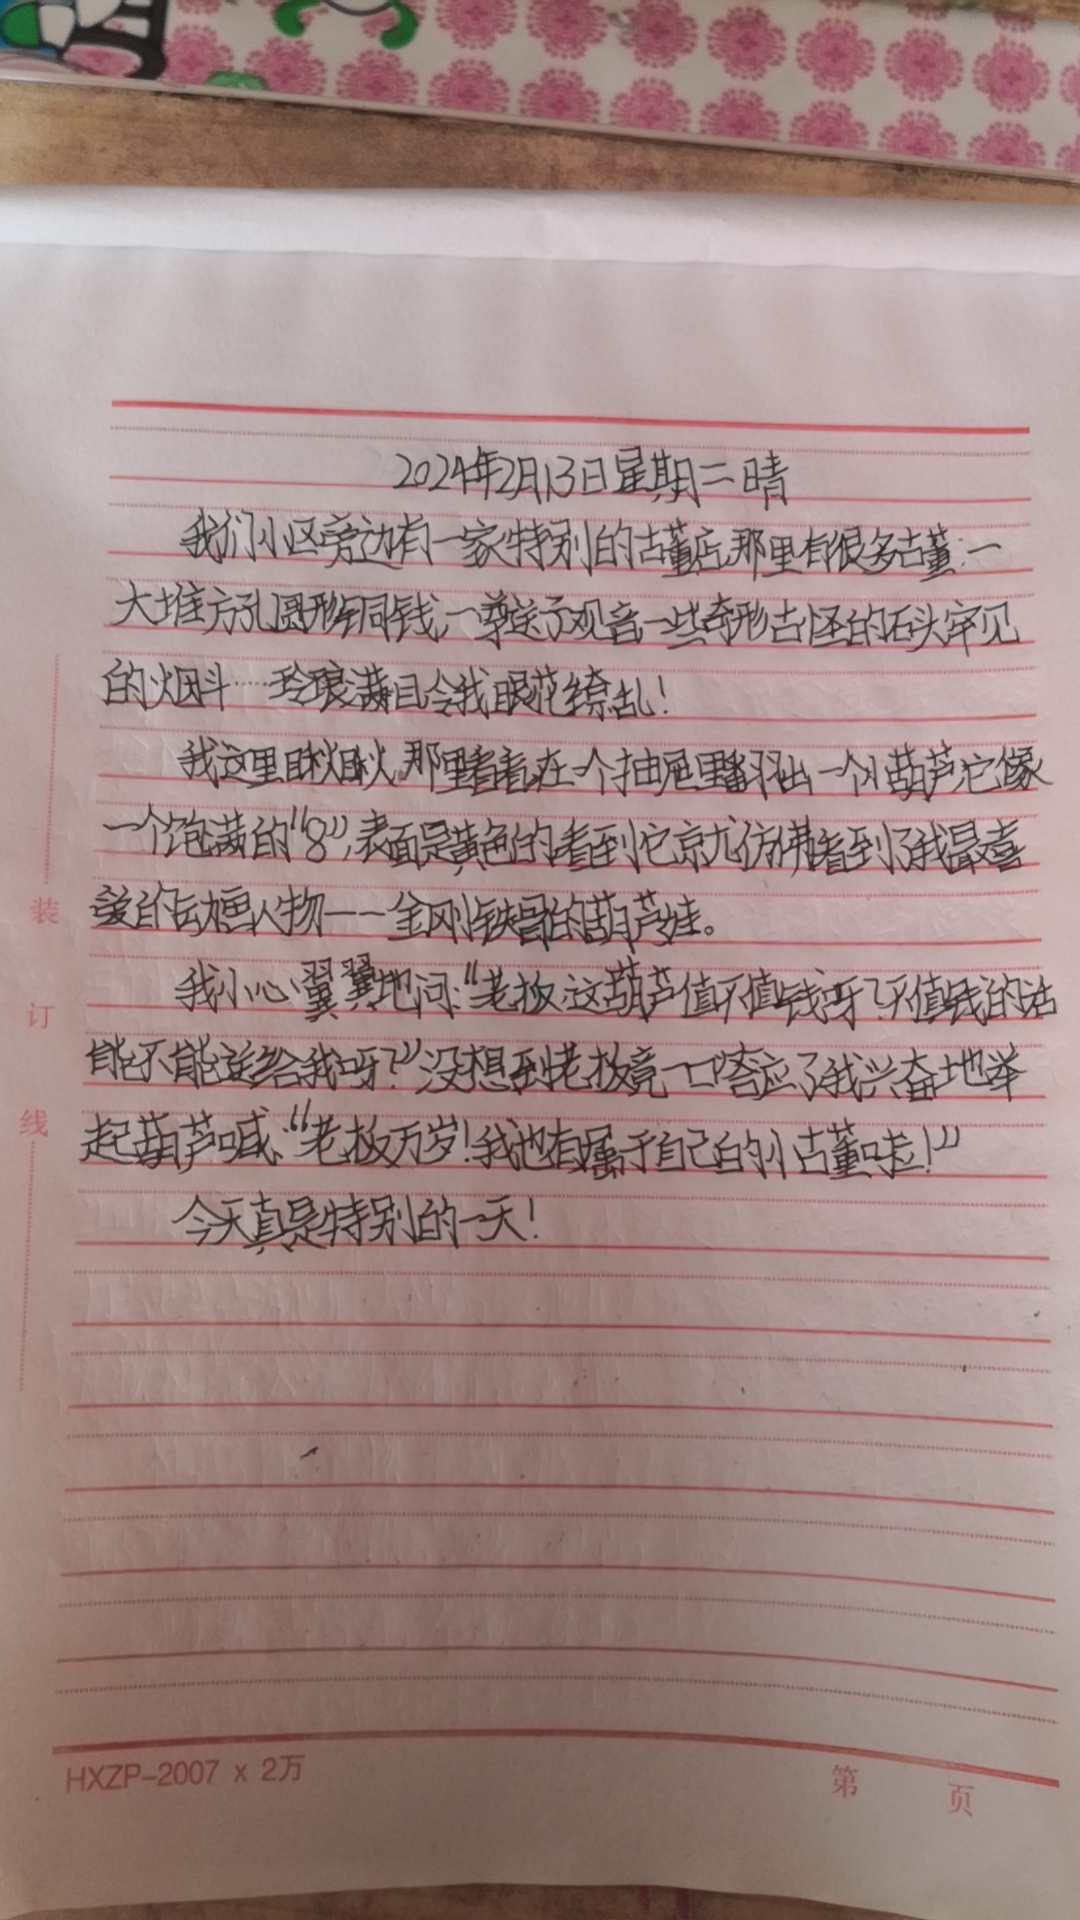 2024年2月13日星期二 晴
我们小区旁边有一家特别的古董店,那里有很多古董:一
大堆方孔圆形铜钱,一尊送子观音一些奇形古怪的石头罕见
的烟斗……玲琅满目令我眼花缭乱!
我这里瞅瞅,那里看看,在一个抽屉里翻出一个小葫芦,它像
一个饱满的“8”,表面是黄色的看到它京尤仿佛看到了我最喜
爱的动画人物——金刚铁哥的葫芦娃。
我小心翼翼地问:“老板,这葫芦值不值钱呀?不值钱的话
能不能送给我呀?”没想到老板竟一口答应了我兴奋地举
起葫芦喊:“老板万岁!我也有属于自己的小古董啦!”
今天真是特别的一天!
装
订
线
HXZP-2007 x 2万
第 页